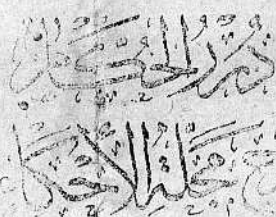 درر الحكام
ح مجلة الأحكا